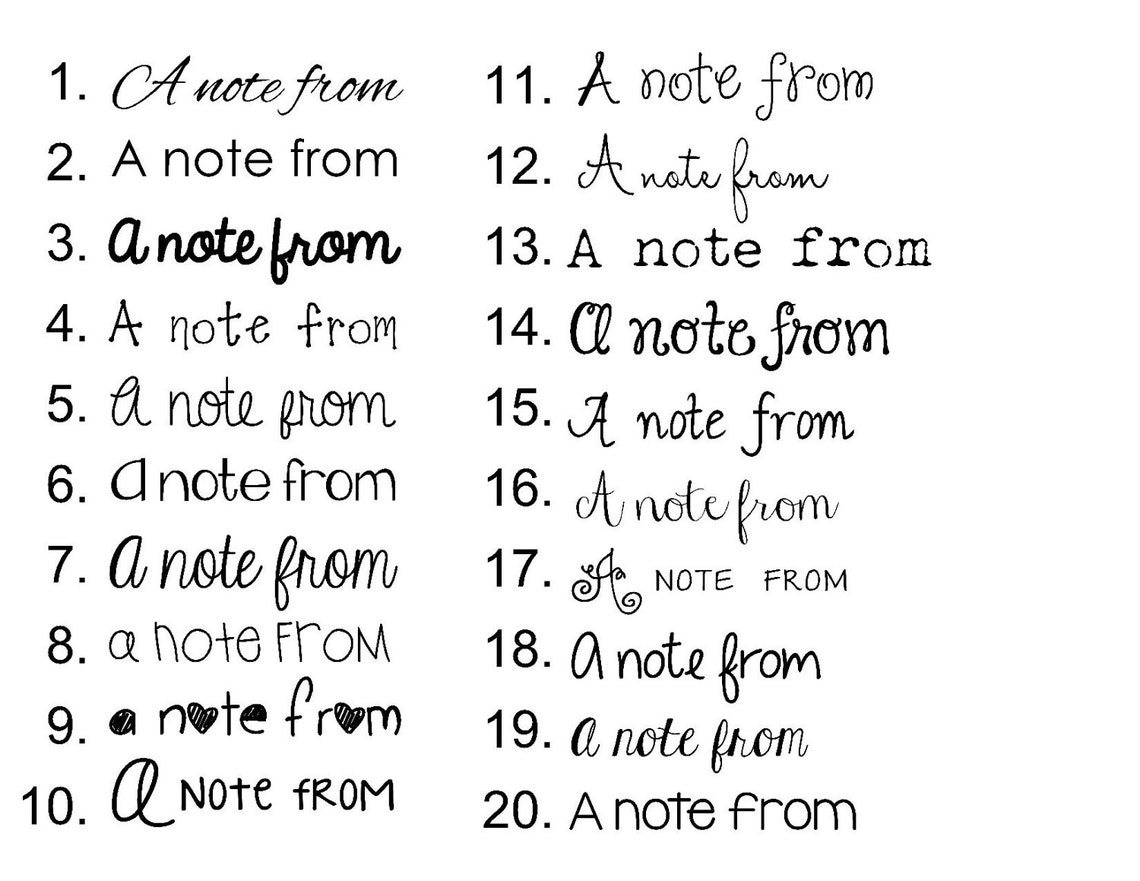 1. A note from
2. A note from
3. a note from
4. A note from
5. a note from
6. a note from
7. a note from
8. a note FroM
9. a note from
10. a NOte fROM
11. A note from
12. A note from
13. A note from
14. a note from
15. A note from
16. A note from
17. A NOTE FROM
18. a note from
19. a note from
20. A note from